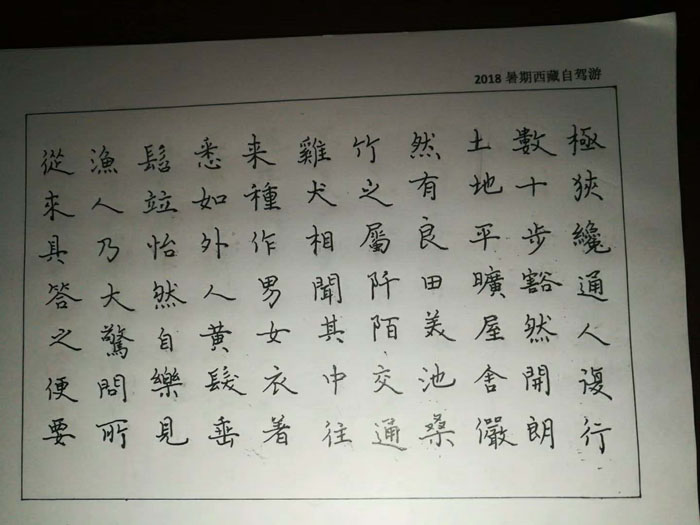 2018 暑期西藏自驾游
極狹纔通人復行
數十步豁然開朗
土地平曠屋舍儼
然有良田美池桑
竹之屬阡陌交通
雞犬相聞其中往
来種作男女衣著
悉如外人黄髮垂
髫竝怡然自樂見
漁人乃大驚問所
從來具答之便要